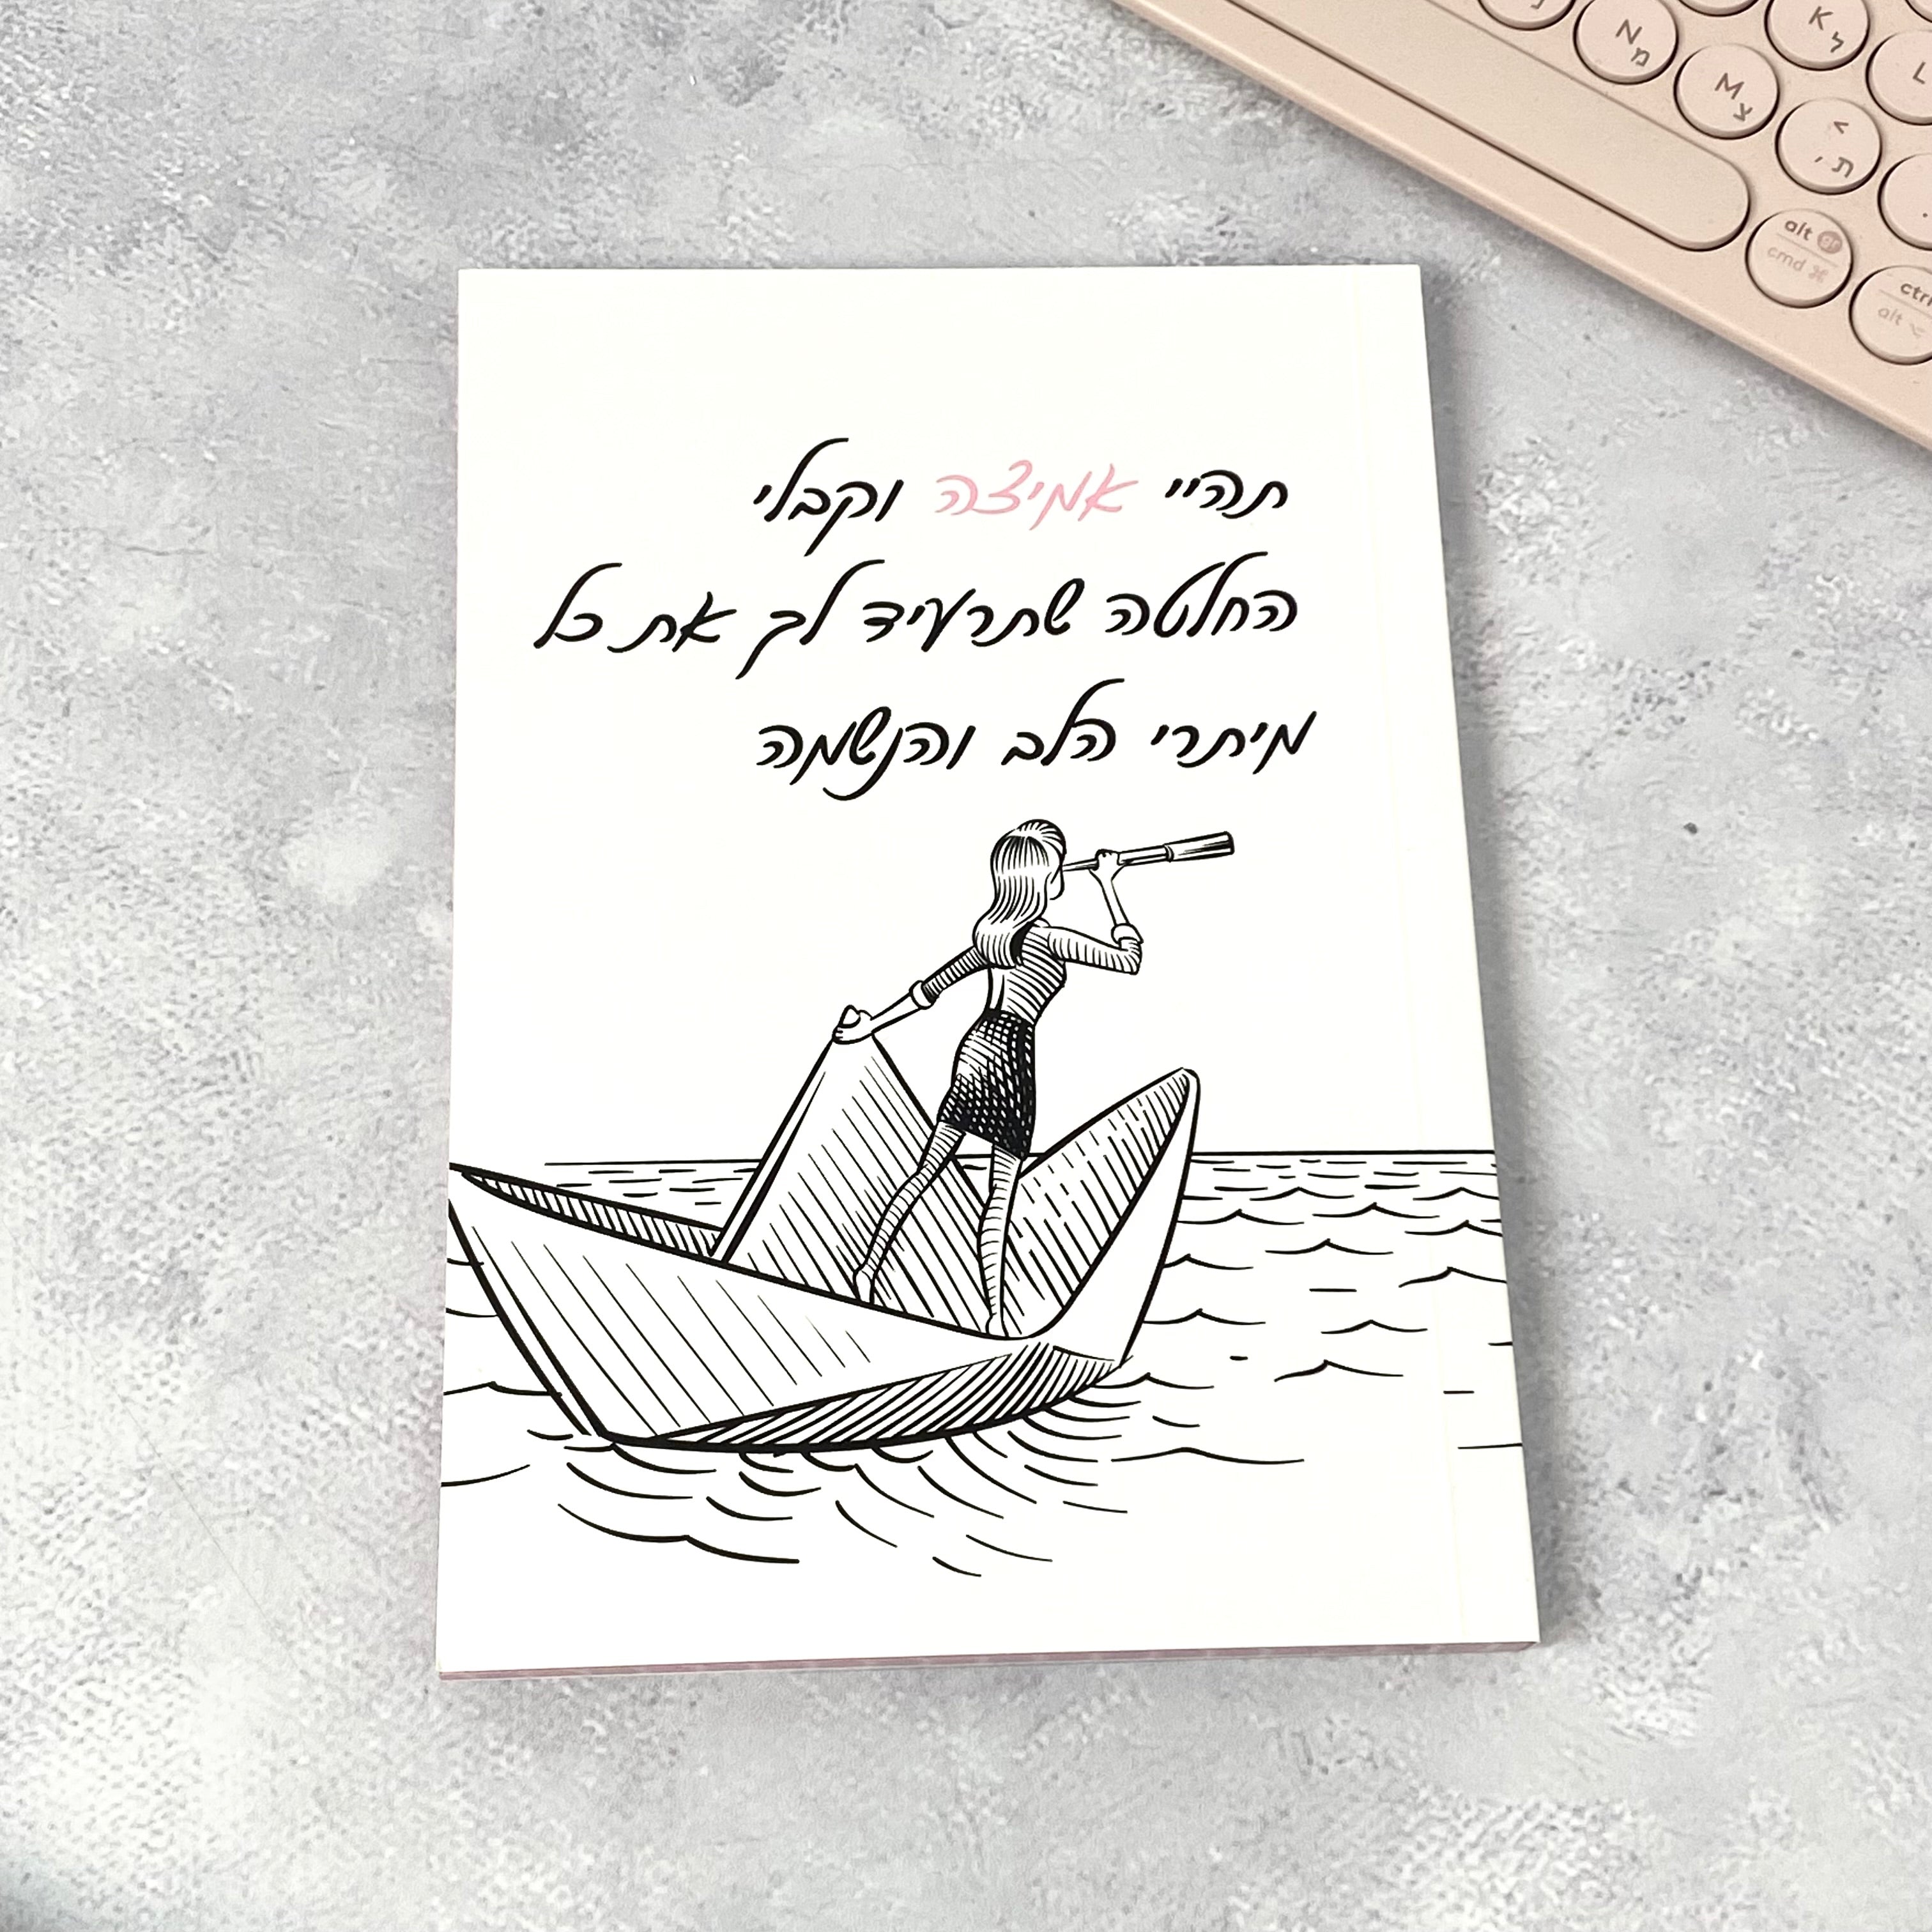 תהיי אמיצה וקבלי
החלטה שתרעיד לך את כל
מיתרי הלב והנשמה
K ל
L
N מ
M צ
> ת ,
alt gr
cmd ⌘
ctrl
alt ⌥